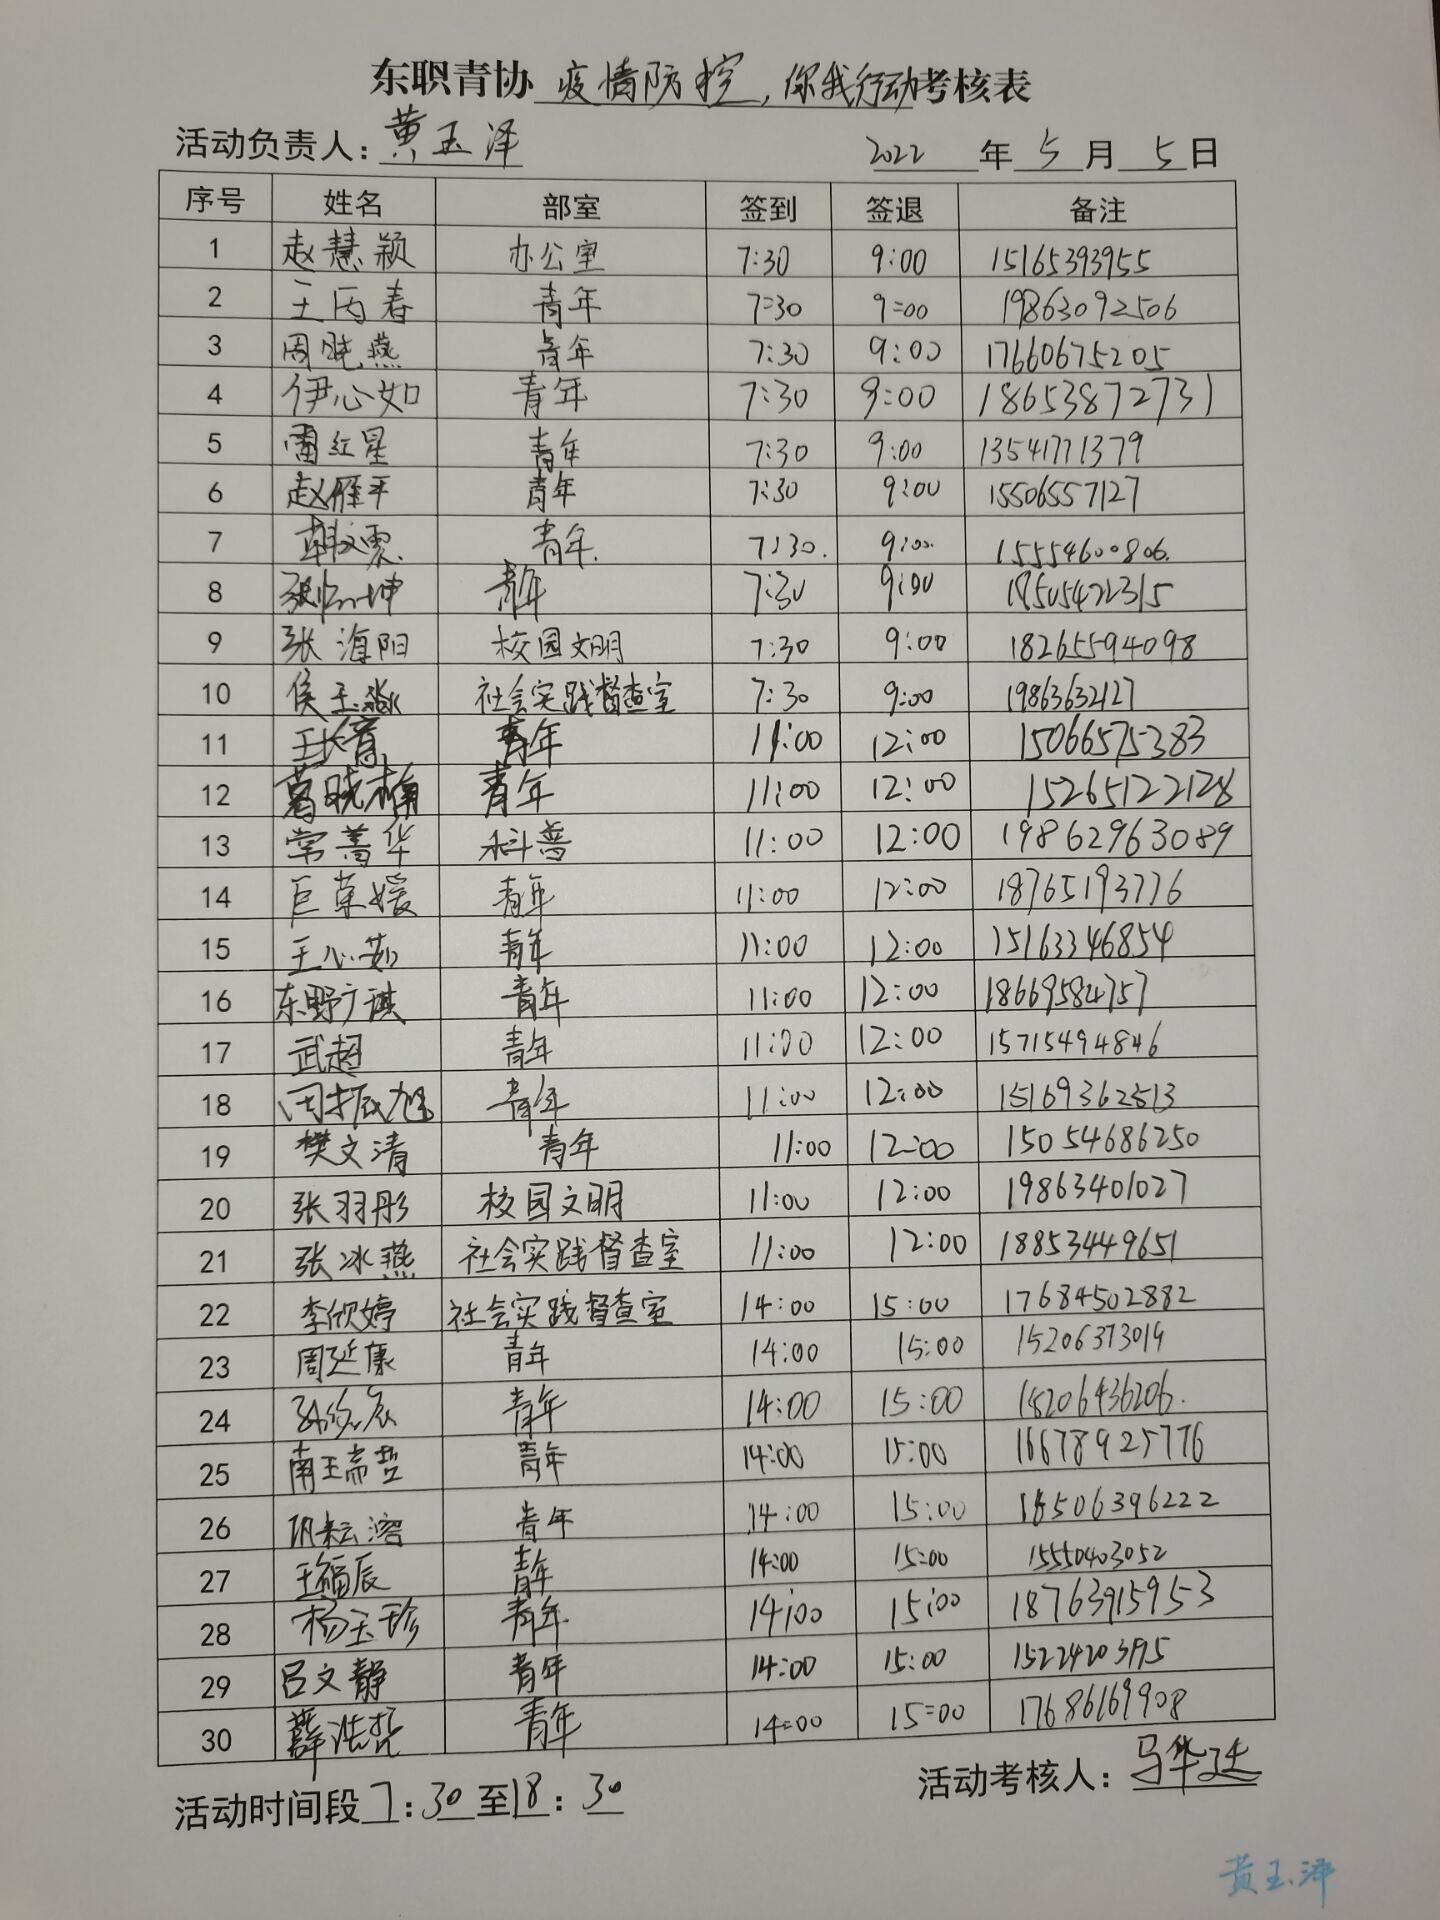 东职青协 疫情防控，你我行动考核表
活动负责人：黄玉泽 2022 年 5 月 5 日
序号 姓名 部室 签到 签退 备注
1 赵慧颖 办公室 7:30 9:00 15165393955
2 王丙春 青年 7:30 9:00 19863092506
3 周晓燕 青年 7:30 9:00 17660675205
4 伊心如 青年 7:30 9:00 18653872731
5 雷红星 青年 7:30 9:00 13541771379
6 赵雁平 青年 7:30 9:00 15506557127
7 青年. 7:30. 9:00. 15554600806.
8 青年 7:30 9:00 19505422315
9 张海阳 校园文明 7:30 9:00 18265594098
10 侯玉淼 社会实践督查室 7:30 9:00 19863632127
11 王长育 青年 11:00 12:00 15066575383
12 葛晓楠 青年 11:00 12:00 15265122128
13 常菁华 科普 11:00 12:00 19862963089
14 巨荣媛 青年 11:00 12:00 18765193776
15 王心茹 青年 11:00 12:00 15163346854
16 东野广淇 青年 11:00 12:00 18669584757
17 武超 青年 11:00 12:00 15715494846
18 周振旭 青年 11:00 12:00 15169362513
19 樊文清 青年 11:00 12:00 15054686250
20 张羽彤 校园文明 11:00 12:00 19863401027
21 张冰燕 社会实践督查室 11:00 12:00 18853449651
22 李欣婷 社会实践督查室 14:00 15:00 17684502882
23 周延康 青年 14:00 15:00 15206373019
24 青年 14:00 15:00 15206436206.
25 南王崇哲 青年 14:00 15:00 16678925776
26 青年 14:00 15:00 18506396222
27 王福辰 青年 14:00 15:00 15550403052
28 杨玉珍 青年 14:00 15:00 18763915953
29 吕文静 青年 14:00 15:00 15224203195
30 薛浩哲 青年 14:00 15:00 17686169908
活动时间段 7:30 至 18:30 活动考核人：马华廷
黄玉泽